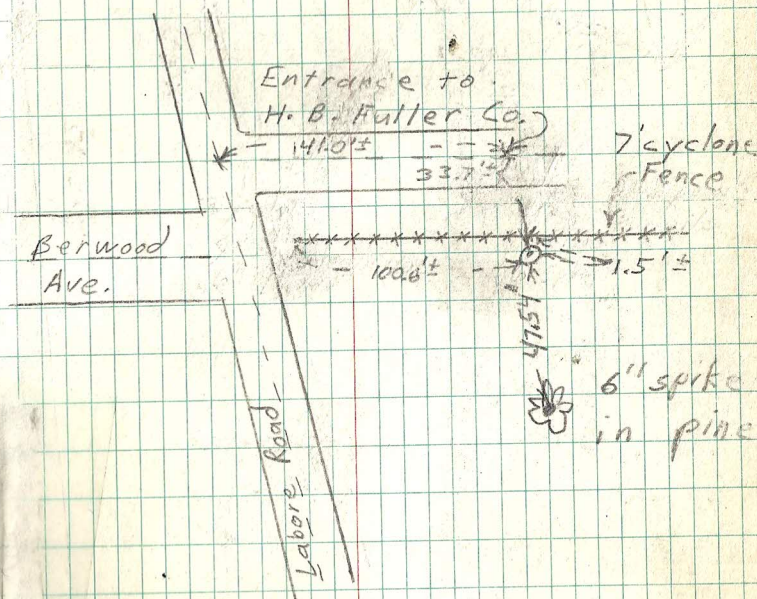 Entrance to
H. B. Fuller Co.
141.0'±
33.7'±
7' cyclone
Fence
Berwood
Ave.
100.6'±
1.5'±
47.54'
6" spike
in pine
Labore Road